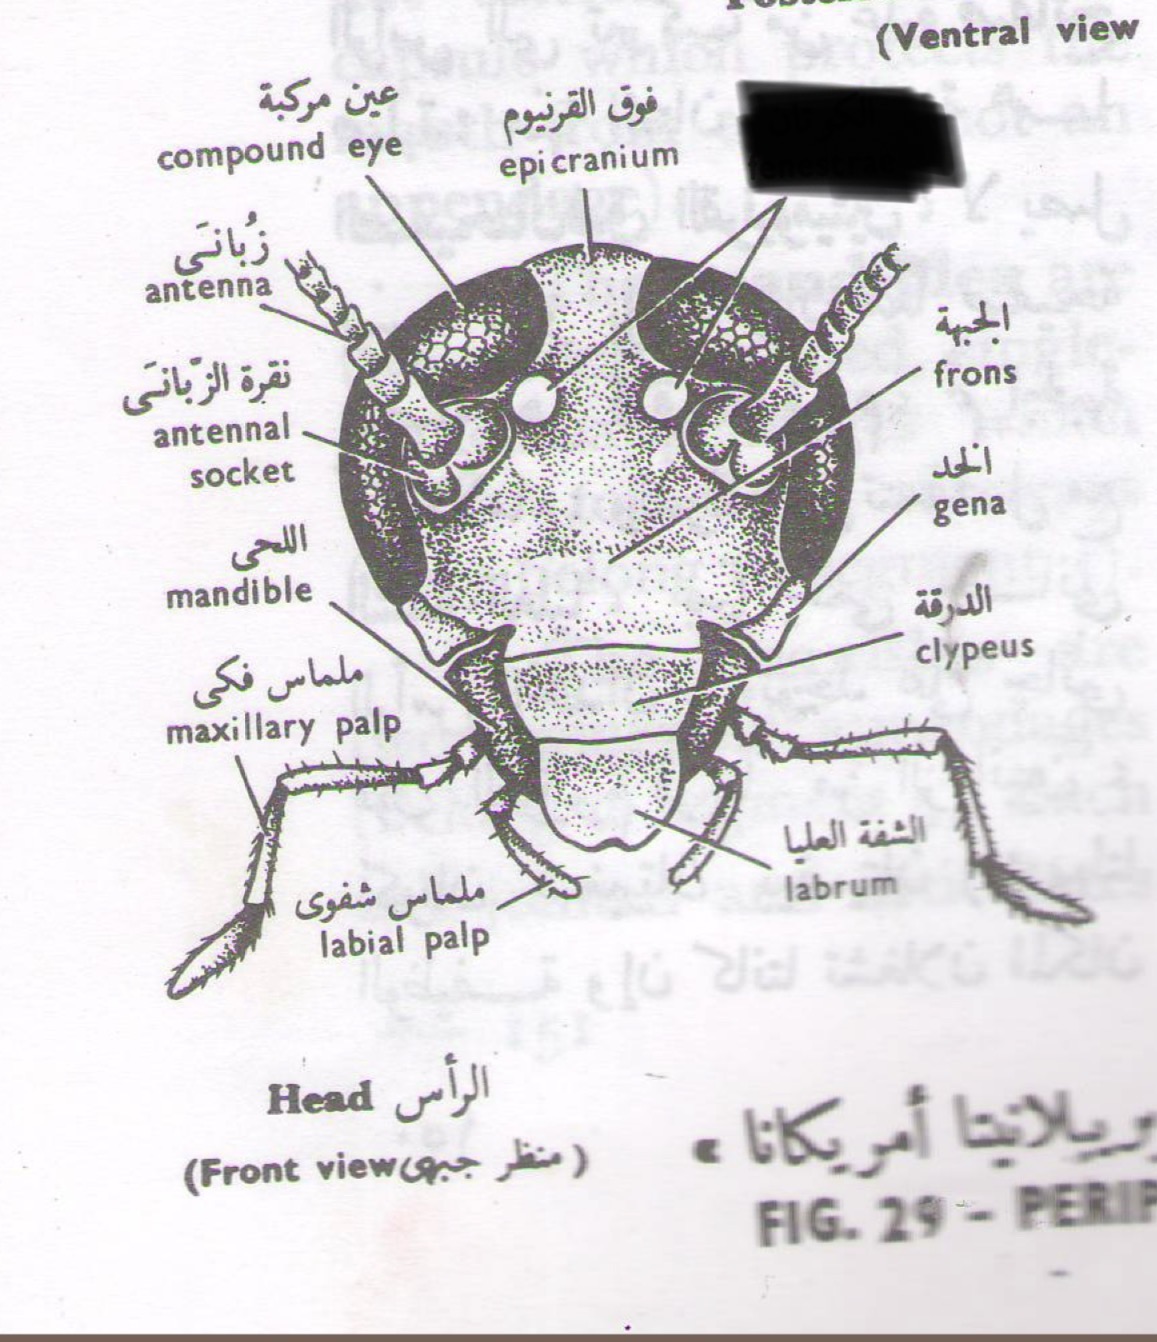 (Ventral view
عين مركبة
compound eye
فوق القرنيوم
epicranium
زُبانَى
antenna
الجبهة
frons
نقرة الزّبانَى
antennal
socket
الخد
gena
اللحى
mandible
الدرقة
clypeus
ملماس فكى
maxillary palp
الشفة العليا
labrum
ملماس شفوى
labial palp
Head الرأس
(Front view منظر جبهى)
أمريكانا »
FIG. 29 – PERIP